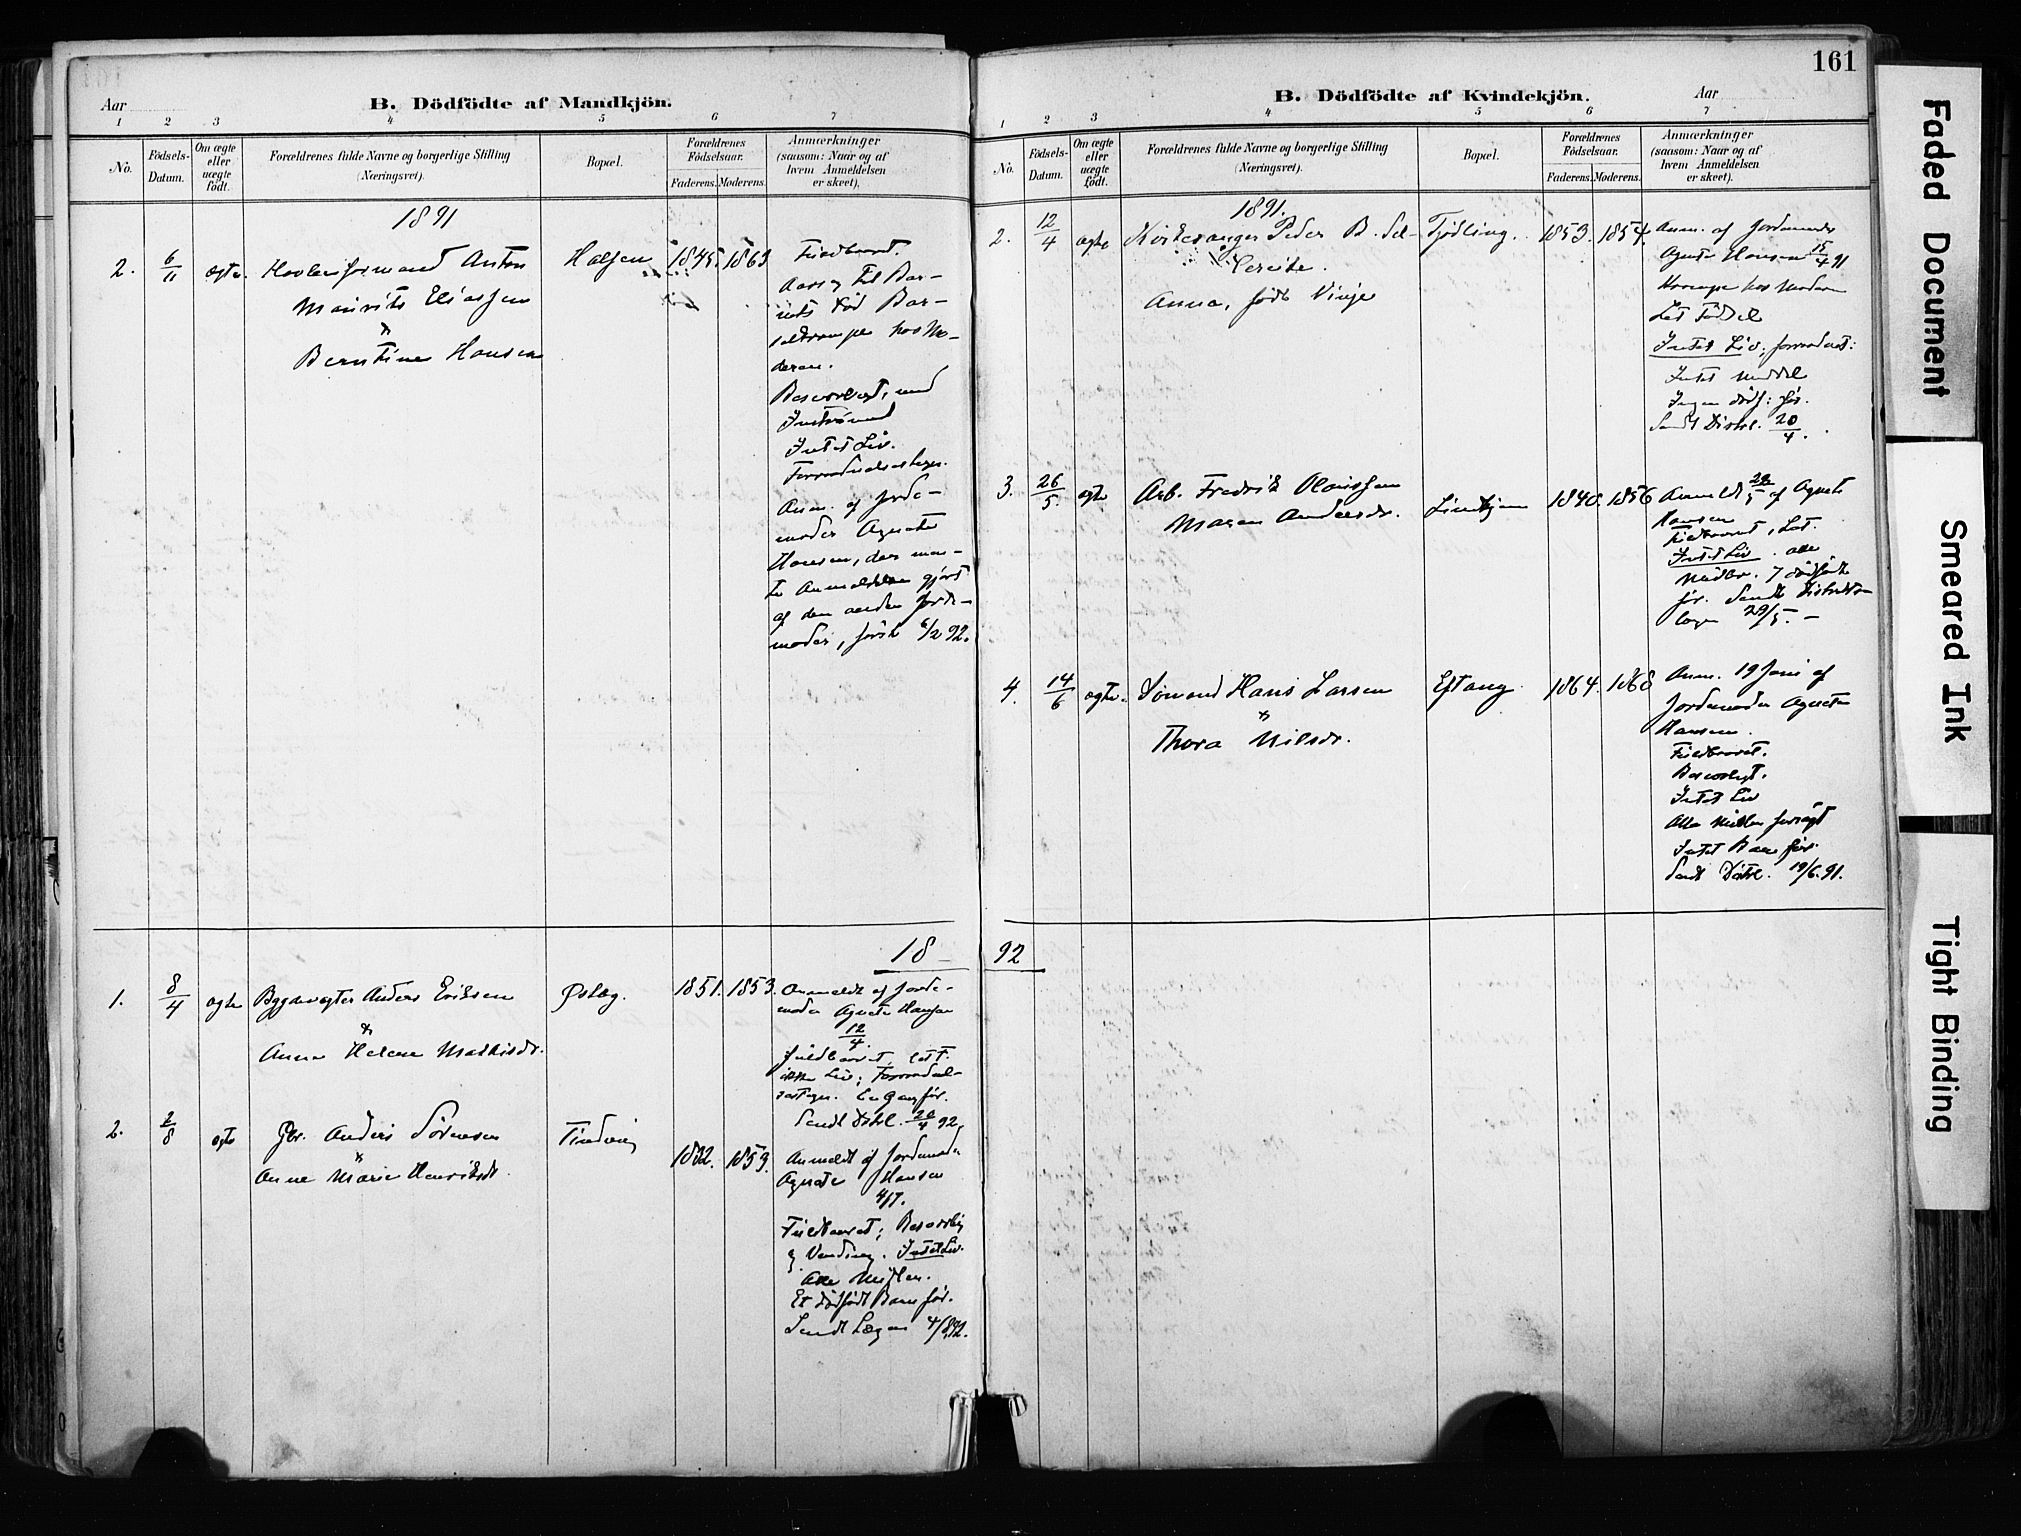 161
Aar
B. Dödfödte af Mandkjön.
1 2 3 4 5 6 7
No.
Födsels-Datum.
Om ægte eller uægte födt.
Forældrenes fulde Navne og borgerlige Stilling (Næringsvei).
Bopæl.
Forældrenes Födselsaar.
Faderens. Moderens.
Anmærkninger
(saasom: Naar og af
hvem Anmeldelsen
er skeet).
1891
2. 6/11 ægte.
Anton
Maurits Eliassen
&
Berntine Hansen
Halsen
1845. 1863
Fuldbaaret.
deren.
Besværligt, med
Intet Liv.
Anm. af Jorde-
moder Agnete
Hansen, der
Anmeldelse gjort
af den anden Jorde-
moder, først 6/2 92.
18
1. 8/4 ægte
Anders Eriksen
&
Anne Helene Mathisdr.
Østby.
1851. 1853.
Anmeldt af Jorde-
moder Agnete Hansen
12/4.
Fuldbaaret, let F.
ikke Liv; Forraadnel-
sestegn. En Gang før.
Sendt Distrl. 20/4 92.
2. 2/8 ægte
Gbr. Anders Sörensen
&
Anne Marie Henriksdr.
Tindvig
1832. 1853.
Anmeldt af Jordemoder
Agnete Hansen
Fuldbaaret; Besværlig
Vending. Intet Liv.
Alle Midler.
Et dödfödt Barn för.
Sendt Lægen 4/8 92.
B. Dödfödte af Kvindekjön.
Aar
1 2 3 4 5 6 7
No.
Födsels-Datum.
Om ægte eller uægte födt.
Forældrenes fulde Navne og borgerlige Stilling (Næringsvei).
Bopæl.
Forældrenes Födselsaar.
Faderens. Moderens.
Anmærkninger
(saasom: Naar og af
hvem Anmeldelsen
er skeet).
1891.
2. 12/4 ægte
Kirkesanger Peder B.
Anna, født Vinje
Tjödling.
1853. 1854.
Anm. af Jordemoder
Agnete Hansen 15/4 91
Krampe hos Moderen
Let Födsel
Intet Liv; forraadnet:
Intet Middel
Ingen dödf: før.
Sendt Distrl. 20/4.
3. 26/5. ægte
Arb. Fredrik Olaussen
Maren Andersdr.
1840. 1856
Anmeldt 28/5 af Agnete
Hansen
Fuldbaaret, Let.
Intet Liv. Alle
Midler. 7 dödfödte
før. Sendt Distrikts-
lægen 29/5. –
4. 14/6 ægte.
Sömand Hans Larsen
&
Thora Nilsdr.
Eftang
1864. 1868
Anm. 19 Juni af
Jordemoder Agnete
Hansen.
Fuldbaaret.
Besværligt.
Intet Liv
Alle Midler forsøgt
Intet Barn før.
Sendt Distrl. 19/6. 91.
92
Faded Document
Smeared Ink
Tight Binding